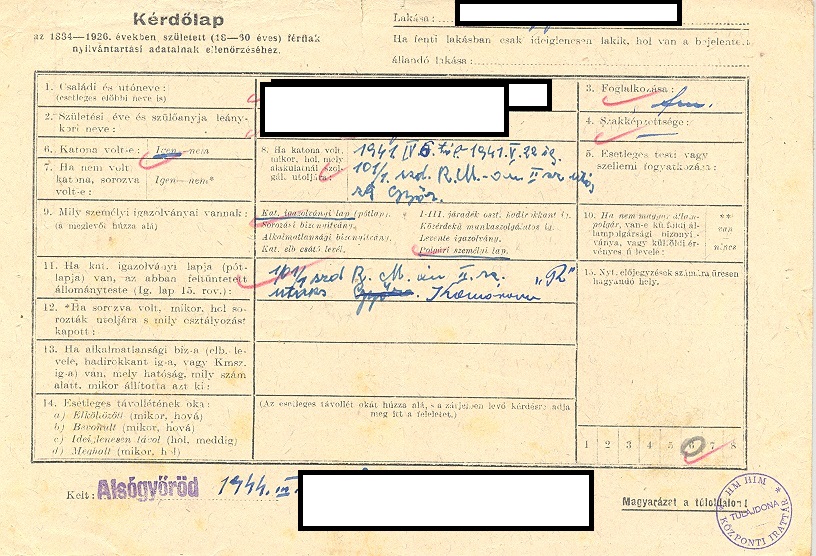 Kérdőlap
az 1884—1926. években született (18—60 éves) férfiak
nyilvántartási adatainak ellenőrzéséhez.
Lakása:
Ha fenti lakásban csak ideiglenesen lakik, hol van a bejelentett
állandó lakása:
1. Családi és utóneve:
(esetleges előbbi neve is)
2. Születési éve és szülőanyja leány-
kori neve:
3. Foglalkozása:
4. Szakképzettsége:
6. Katona volt-e: Igen—nem
7. Ha nem volt
katona, sorozva Igen—nem*
volt-e:
8. Ha katona volt,
mikor, hol, mely
alakulatnál szol-
gált utoljára:
1941 IV 6. tól-1941. V. 22 ig.
101/1 szd. R.M.-
Győr.
5. Esetleges testi vagy
szellemi fogyatkozása:
9. Mily személyi igazolványai vannak:
(a meglevőt húzza alá)
Kat. igazolványi lap (pótlap),
Sorozási bizonyítvány,
Alkalmatlansági bizonyítvány,
Kat. elbocsátó levél,
I-III. járadék oszt. hadirokkant ig.
Közérdekű munkaszolgálatos ig.
Levente igazolvány.
Polgári személyi lap.
10. Ha nem magyar állam-
polgár, van-e külföldi ál-
lampolgársági bizonyít-
ványa, vagy külföldi ér-
vényes útlevele:
**
van
nincs
11. Ha kat. igazolványi lapja (pót-
lapja) van, az abban feltüntetett
állományteste (Ig. lap 15. rov.):
101/1 szd R. M. II. "R"
Győr. Komárom
15. Nyt. előjegyzések számára üresen
hagyandó hely.
12. *Ha sorozva volt, mikor, hol so-
rozták utoljára s mily osztályozást
kapott:
13. Ha alkalmatlansági biz-a (elb. le-
vele, hadirokkant ig-a, vagy Kmsz.
ig-a) van, mely hatóság, mily szám
alatt, mikor állította azt ki:
14. Esetleges távollétének oka:
a) Elköltözött (mikor, hová)
b) Bevonult (mikor, hová)
c) Ideiglenesen távol (hol, meddig)
d) Meghalt (mikor, hol)
(Az esetleges távollét okát húzza alá, s a zárjelben levő kérdésre adja
meg itt a feleletet.)
1 2 3 4 5 6 7 8
Kelt: Alsógyőröd 1944.
Magyarázat a túloldalon!
HM HIM
TULAJDONA
KÖZPONTI IRATTÁR